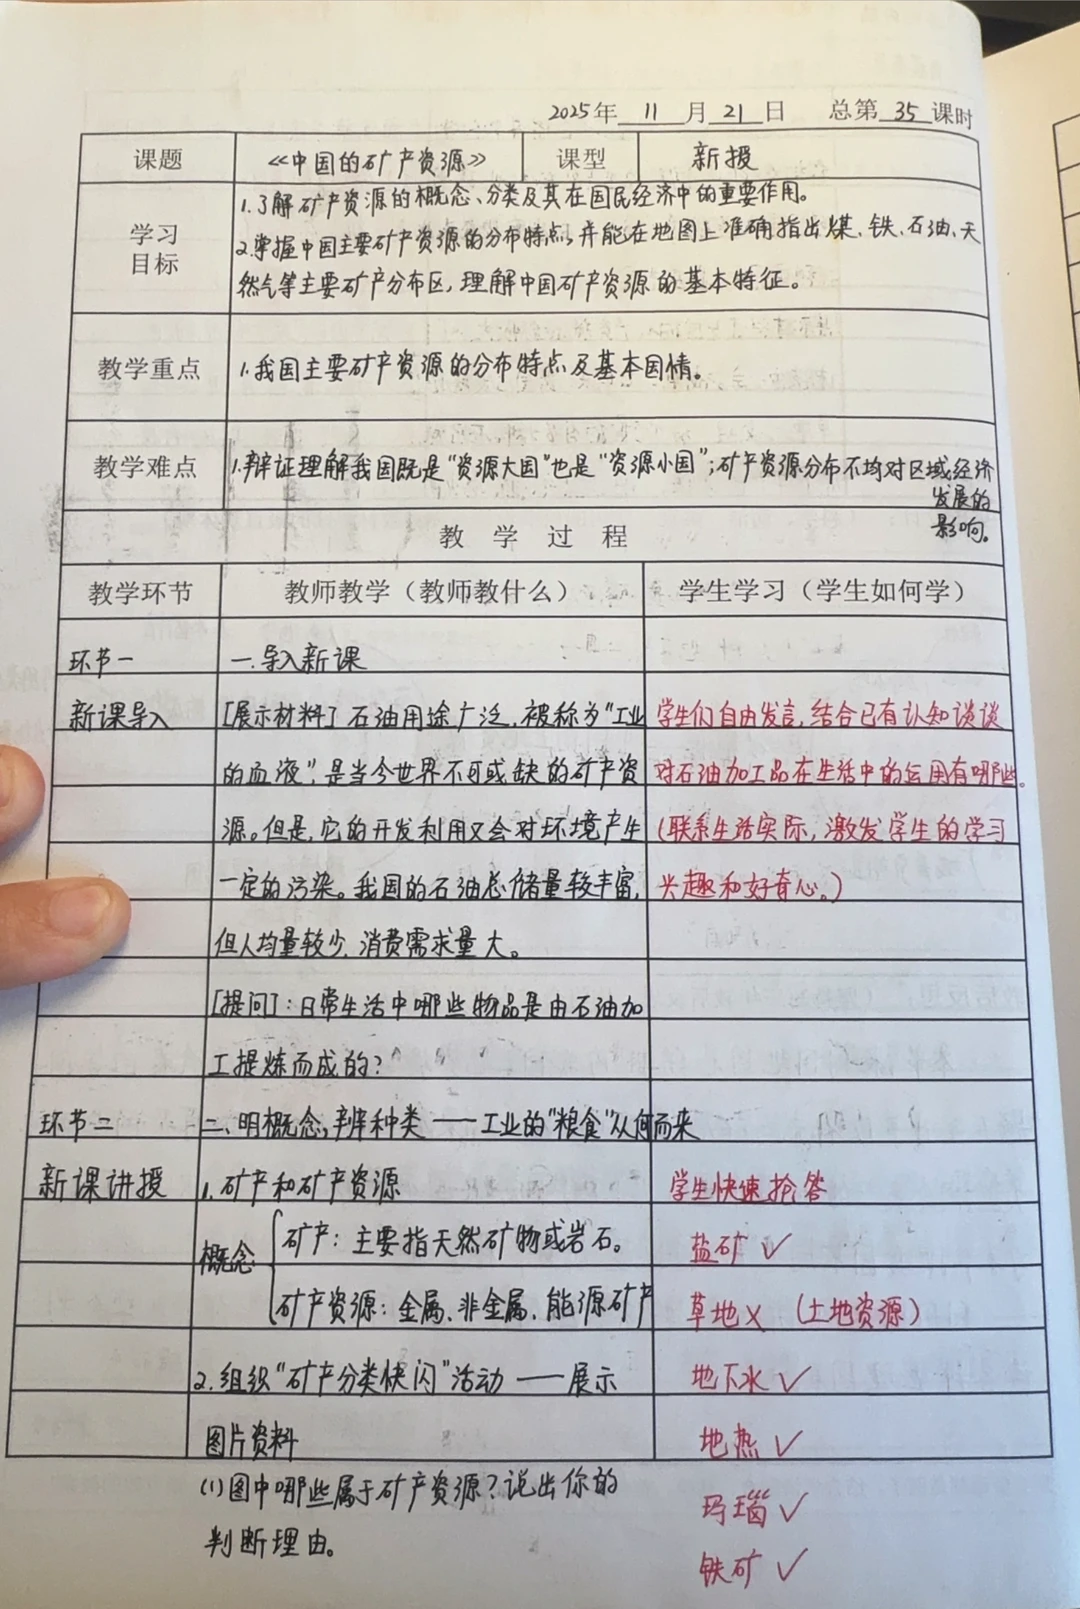 2025年 11 月 21 日 总第 35 课时
课题 《中国的矿产资源》 课型 新授
学习目标
1.了解矿产资源的概念、分类及其在国民经济中的重要作用。
2.掌握中国主要矿产资源的分布特点,并能在地图上准确指出煤、铁、石油、天
然气等主要矿产分布区,理解中国矿产资源的基本特征。
教学重点 1.我国主要矿产资源的分布特点及基本国情。
教学难点 1.辩证理解我国既是“资源大国”也是“资源小国”;矿产资源分布不均对区域经济
发展的
影响。
教 学 过 程
教学环节 教师教学(教师教什么) 学生学习(学生如何学)
环节一 一.导入新课
新课导入 [展示材料]石油用途广泛,被称为“工业 学生们自由发言,结合已有认知谈谈
的血液”,是当今世界不可或缺的矿产资 对石油加工品在生活中的运用有哪些。
源。但是,它的开发利用又会对环境产生 (联系生活实际,激发学生的学习
一定的污染。我国的石油总储量较丰富, 兴趣和好奇心。)
但人均量较少,消费需求量大。
[提问]:日常生活中哪些物品是由石油加
工提炼而成的?
环节二 二、明概念,辨种类——工业的“粮食”从何而来
新课讲授 1.矿产和矿产资源 学生快速抢答
概念 矿产:主要指天然矿物或岩石。 盐矿 ✓
矿产资源:金属、非金属、能源矿产 草地 × (土地资源)
2.组织“矿产分类快闪”活动——展示 地下水 ✓
图片资料 地热 ✓
(1)图中哪些属于矿产资源?说出你的 玛瑙 ✓
判断理由。 铁矿 ✓